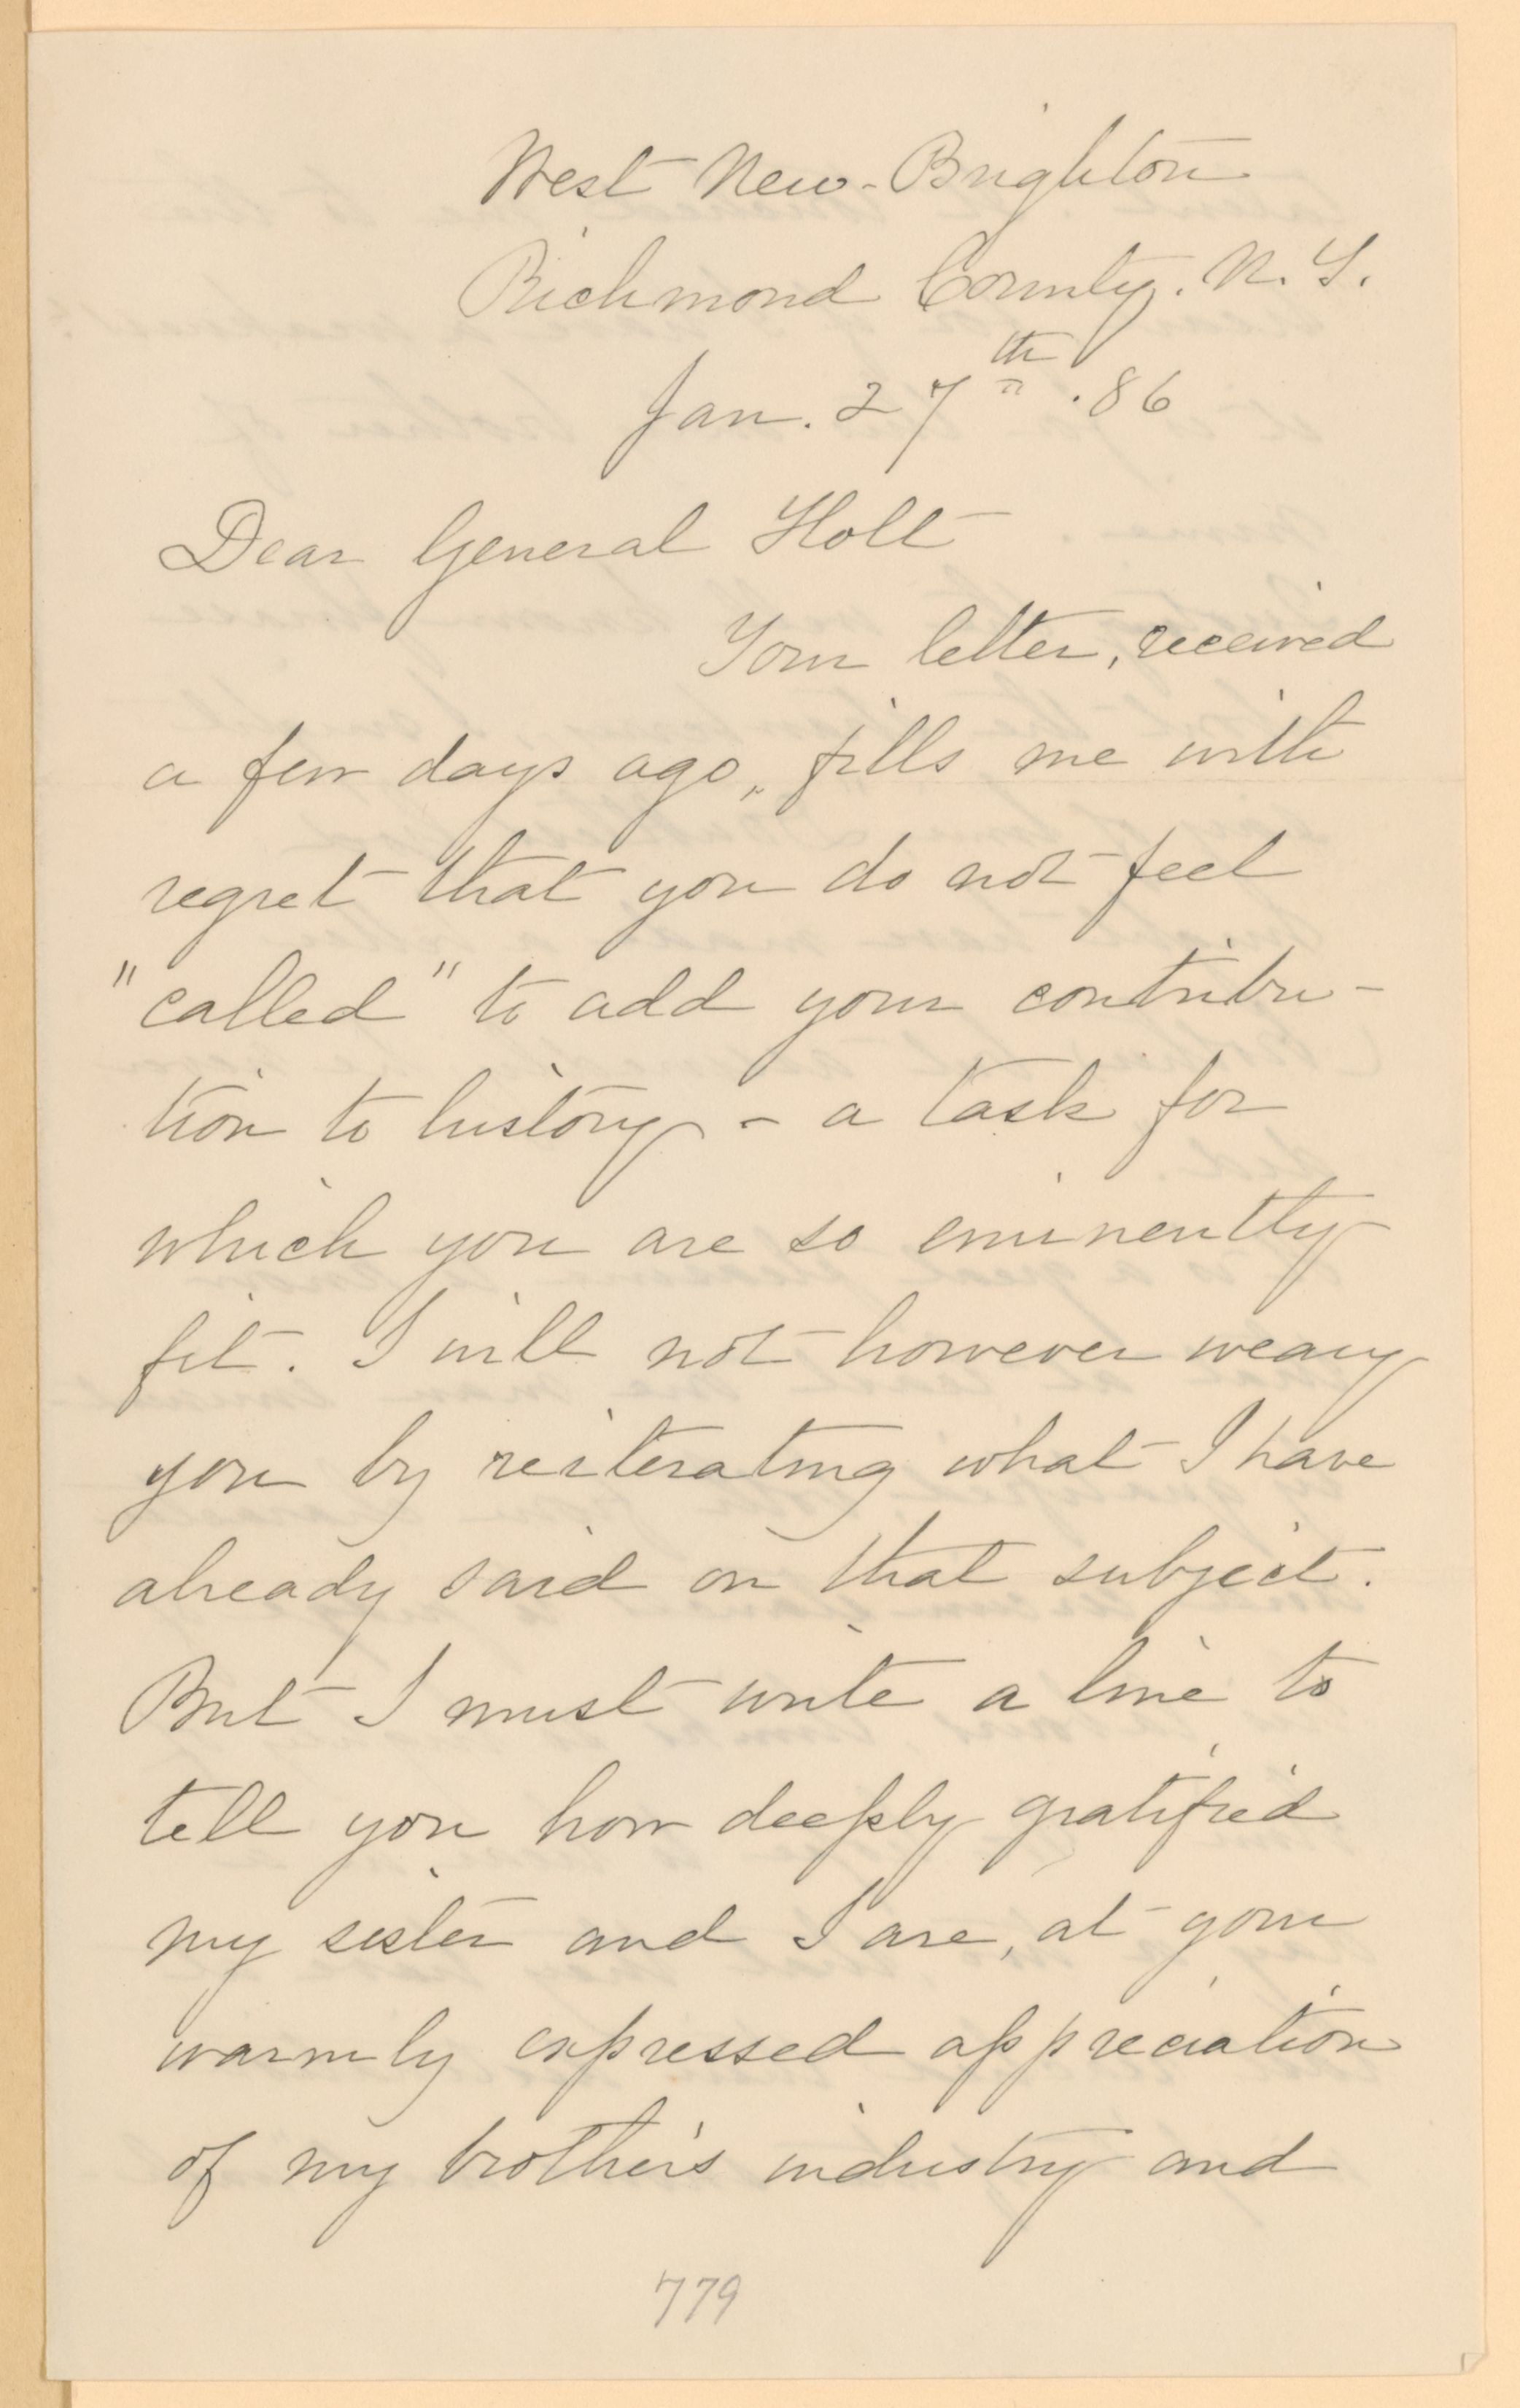 West New-Brighton
Richmond County. N. Y.
Jan. 27th .86
Dear General Holt
Your letter, received
a few days ago, fills me with
regret that you do not feel
"called" to add your contribu-
tion to history - a task for
which you are so eminently
fit. I will not however weary
you by reiterating what I have
already said on that subject.
But I must write a line to
tell you how deeply gratified
my sister and I are, at your
warmly expressed appreciation
of my brother's industry and
779